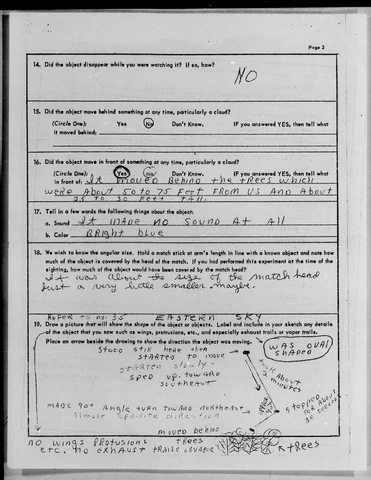 Page 3
14. Did the object disappear while you were watching it? If so, how?
NO
15. Did the object move behind something at any time, particularly a cloud?
(Circle One): Yes No Don't Know. IF you answered YES, then tell what
it moved behind:
16. Did the object move in front of something at any time, particularly a cloud?
(Circle One): Yes No Don't Know. IF you answered YES, then tell what
in front of: It moved Behind the trees which
were About 50 to 75 Feet FROM US And About
25 to 30 Feet TALL.
17. Tell in a few words the following things about the object:
a. Sound It MADE NO SOUND At All
b. Color BRight blue
18. We wish to know the angular size. Hold a match stick at arm's length in line with a known object and note how
much of the object is covered by the head of the match. If you had performed this experiment at the time of the
sighting, how much of the object would have been covered by the match head?
It was about the size of the match head
Just a very little smaller maybe.
Refer to no. 35 EASTERN SKY
19. Draw a picture that will show the shape of the object or objects. Label and include in your sketch any details
of the object that you saw such as wings, protrusions, etc., and especially exhaust trails or vapor trails.
Place an arrow beside the drawing to show the direction the object was moving.
WAS OVAL
SHAPED
Stood still here then
STARTED to move
STARTED slowly -
SPED up. toward
southeast
took About
2 minutes
MADE 90° Angle turn toward northeast
almost opposite direction
Stopped
took about
30 seconds
moved behind
trees
no wings protusions
etc. no exhaust trails or vapor
trees